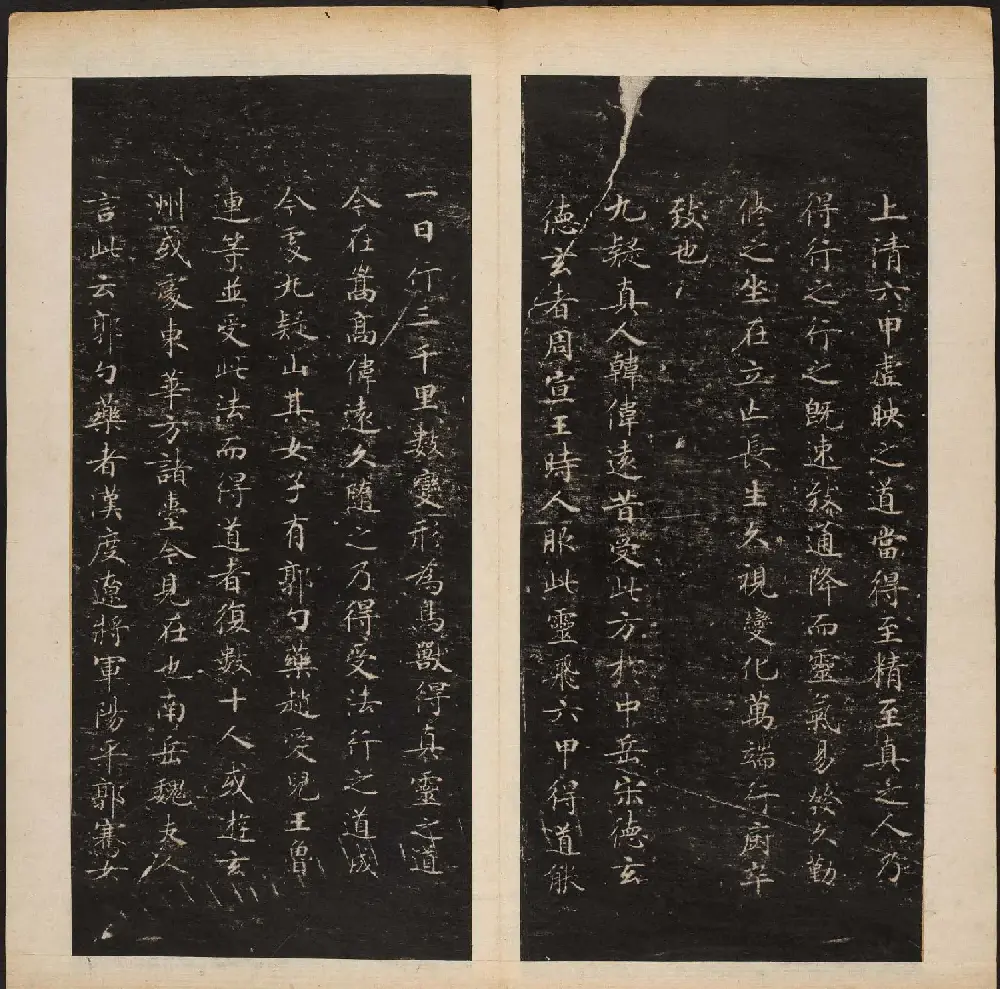 上清六甲虛映之道當得至精至真之人乃
得行之行之既速致通降而靈氣易發久勤
修之坐在立亡長生久視變化萬端行廚卒
致也
九疑真人韓偉遠昔受此方於中岳宋德玄
德玄者周宣王時人服此靈飛六甲得道能
一日行三千里數變形為鳥獸得真靈之道
今在嵩高偉遠久隨之乃得受法行之道成
今處九疑山其女子有郭勺藥趙愛兒王魯
連等並受此法而得道者復數十人或遊玄
洲或處東華方諸臺今見在也南岳魏夫人
言此云郭勺藥者漢度遼將軍陽平郭騫女